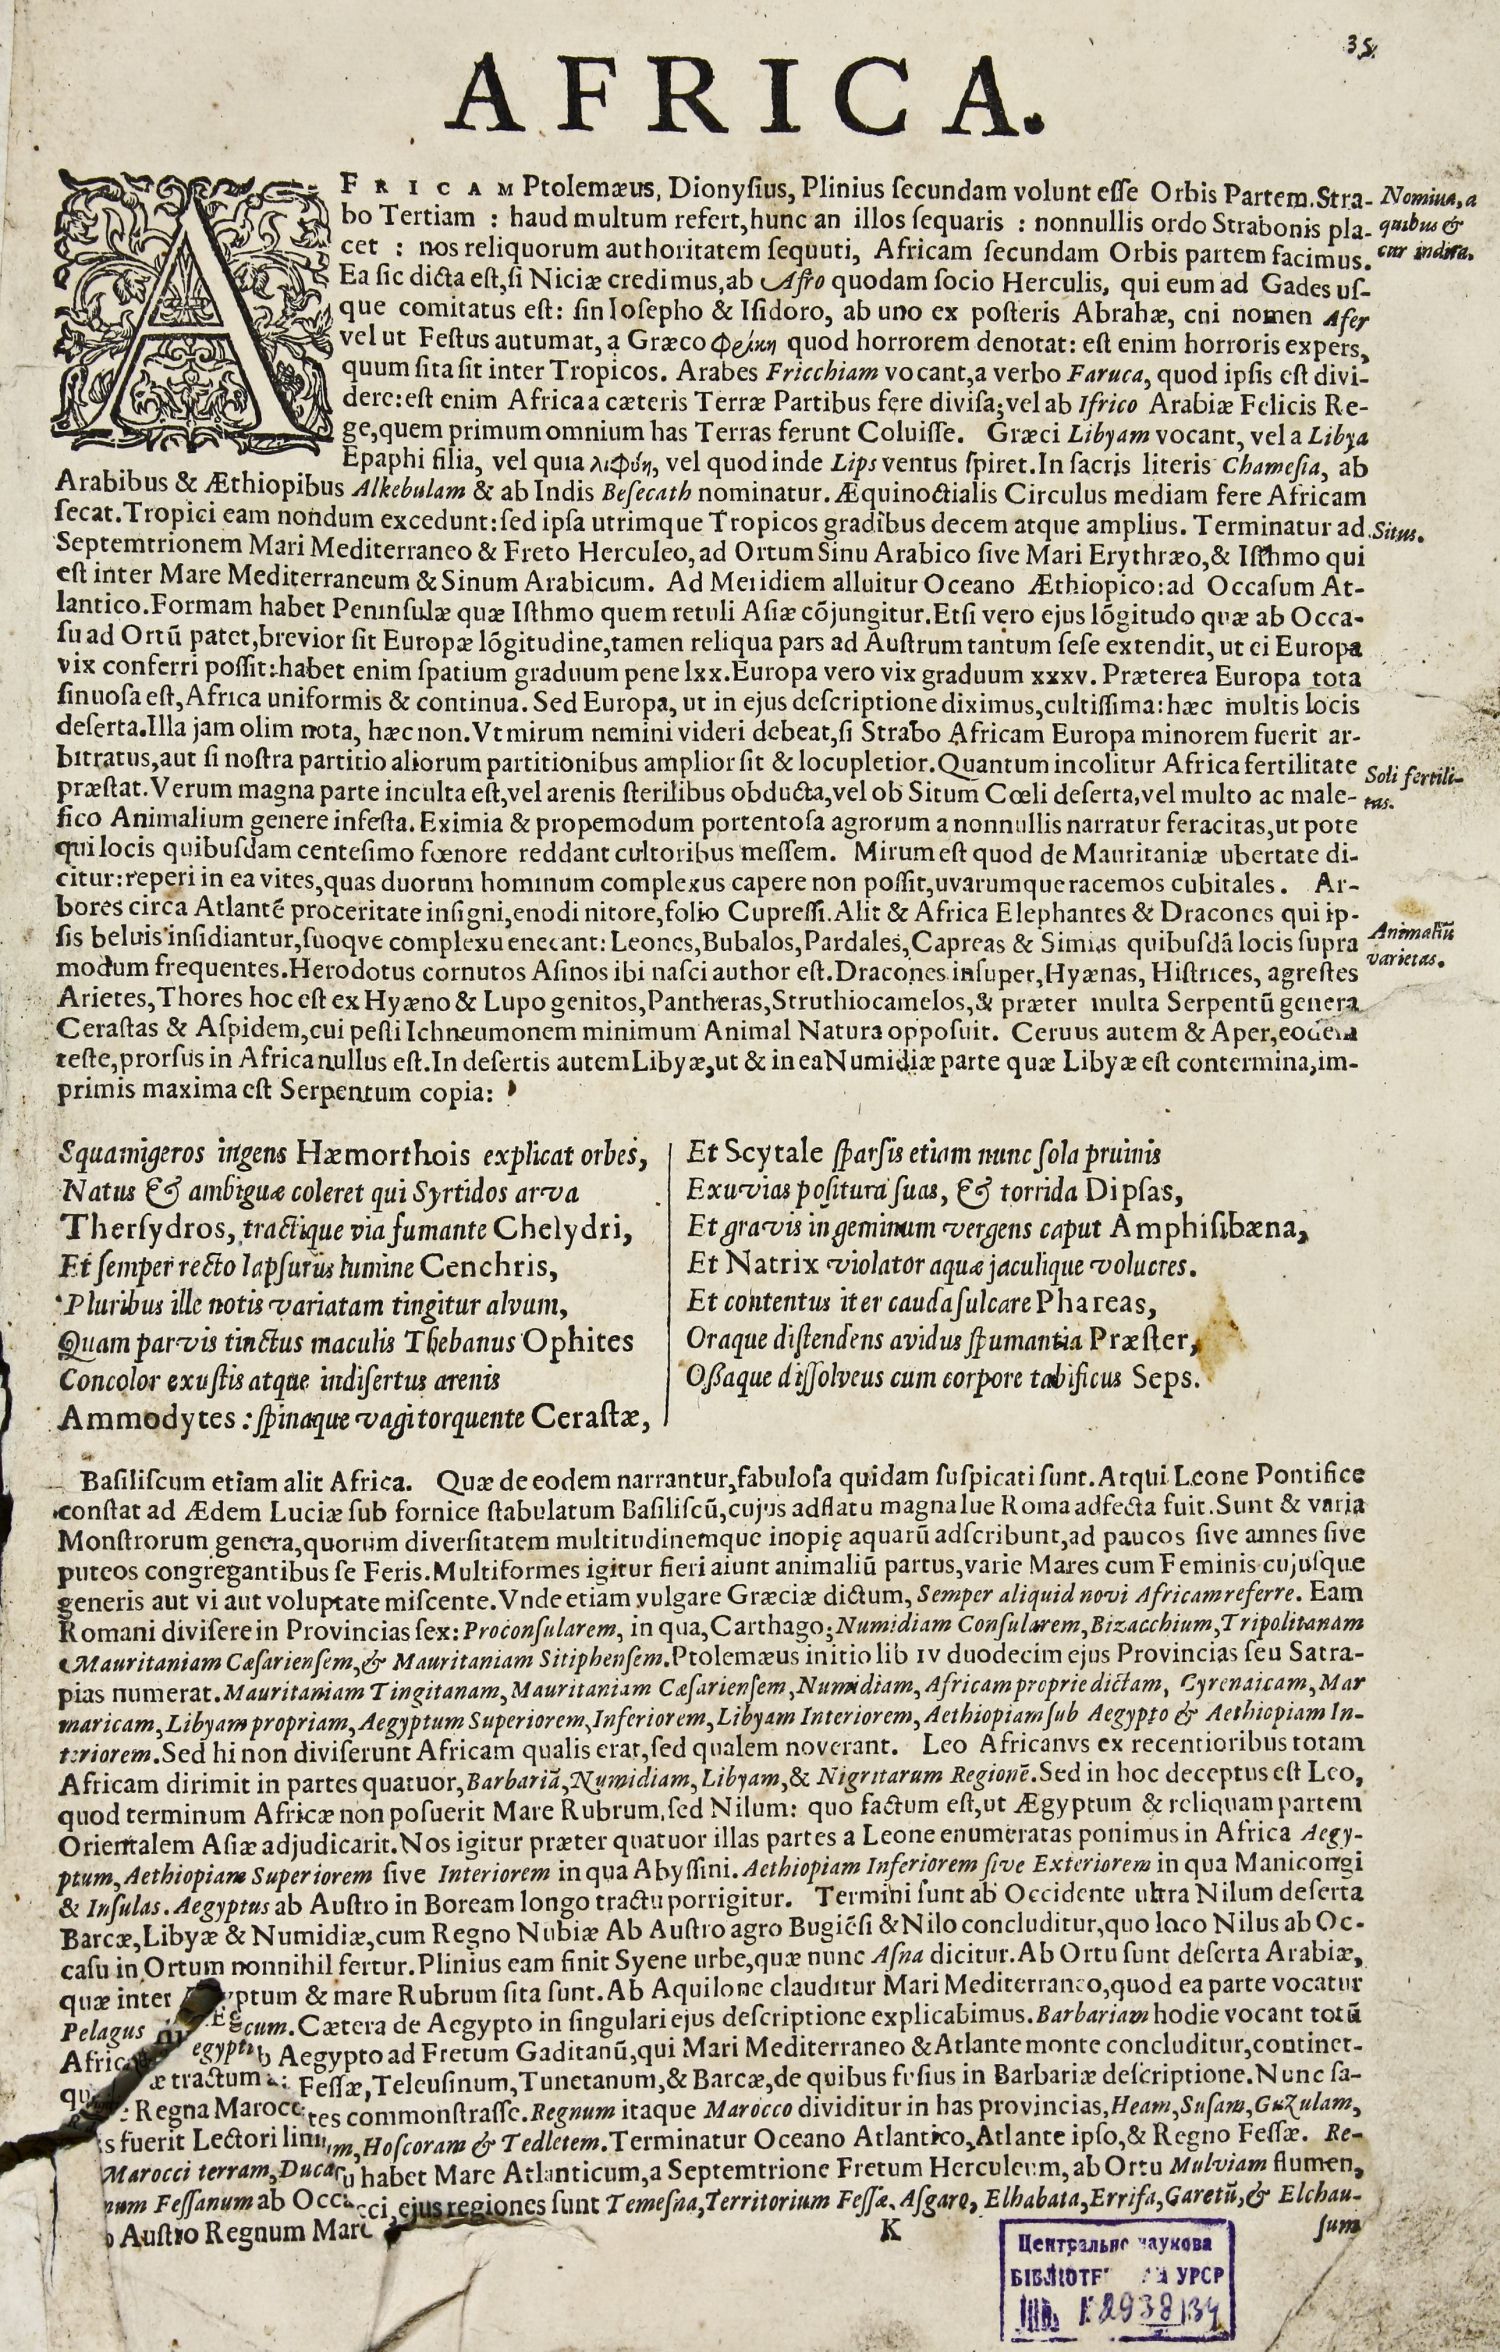 35.
AFRICA.
AFRICAM Ptolemæus, Dionyſius, Plinius ſecundam volunt eſſe Orbis Partem. Stra-
bo Tertiam : haud multum refert, hunc an illos ſequaris : nonnullis ordo Strabonis pla-
cet : nos reliquorum authoritatem ſequuti, Africam ſecundam Orbis partem facimus.
Nomina, a
quibus &
cur indita.
Ea ſic dicta eſt, ſi Niciæ credimus, ab Afro quodam ſocio Herculis, qui eum ad Gades uſ-
que comitatus eſt: ſin Ioſepho & Iſidoro, ab uno ex poſteris Abrahæ, cni nomen Afer
vel ut Feſtus autumat, a Græco φρίκη quod horrorem denotat: eſt enim horroris expers,
quum ſita ſit inter Tropicos. Arabes Fricchiam vocant, a verbo Faruca, quod ipſis eſt divi-
dere: eſt enim Africa a cæteris Terræ Partibus fere diviſa; vel ab Ifrico Arabiæ Felicis Re-
ge, quem primum omnium has Terras ferunt Coluiſſe. Græci Libyam vocant, vel a Libya
Epaphi filia, vel quia vel quod inde Lips ventus ſpiret. In ſacris literis Chameſia, ab
Arabibus & Æthiopibus Alkebulam & ab Indis Beſecath nominatur. Æquinoctialis Circulus mediam fere Africam
ſecat. Tropici eam nondum excedunt: ſed ipſa utrimque Tropicos gradibus decem atque amplius. Terminatur ad
Situs.
Septemtrionem Mari Mediterraneo & Freto Herculeo, ad Ortum Sinu Arabico ſive Mari Erythræo, & Iſthmo qui
eſt inter Mare Mediterraneum & Sinum Arabicum. Ad Meridiem alluitur Oceano Æthiopico: ad Occaſum At-
lantico. Formam habet Peninſulæ quæ Iſthmo quem retuli Aſiæ cõjungitur. Etſi vero ejus lõgitudo quæ ab Occa-
ſu ad Ortũ patet, brevior ſit Europæ lõgitudine, tamen reliqua pars ad Auſtrum tantum ſeſe extendit, ut ei Europa
vix conferri poſſit: habet enim ſpatium graduum pene lxx. Europa vero vix graduum xxxv. Præterea Europa tota
ſinuoſa eſt, Africa uniformis & continua. Sed Europa, ut in ejus deſcriptione diximus, cultiſſima: hæc multis locis
deſerta. Illa jam olim nota, hæc non. Vt mirum nemini videri debeat, ſi Strabo Africam Europa minorem fuerit ar-
bitratus, aut ſi noſtra partitio aliorum partitionibus amplior ſit & locupletior. Quantum incolitur Africa fertilitate
Soli fertili-
tas.
præſtat. Verum magna parte inculta eſt, vel arenis ſterilibus obducta, vel ob Situm Cœli deſerta, vel multo ac male-
fico Animalium genere infeſta. Eximia & propemodum portentoſa agrorum a nonnullis narratur feracitas, ut pote
qui locis quibuſdam centeſimo fœnore reddant cultoribus meſſem. Mirum eſt quod de Mauritaniæ ubertate di-
citur: reperi in ea vites, quas duorum hominum complexus capere non poſſit, uvarumque racemos cubitales. Ar-
bores circa Atlantẽ proceritate inſigni, enodi nitore, folio Cupreſſi. Alit & Africa Elephantes & Dracones qui ip-
ſis beluis inſidiantur, ſuoqve complexu enecant: Leones, Bubalos, Pardales, Capreas & Simias quibuſdã locis ſupra
Animaliũ
varietas.
modum frequentes. Herodotus cornutos Aſinos ibi naſci author eſt. Dracones inſuper, Hyænas, Hiſtrices, agreſtes
Arietes, Thores hoc eſt ex Hyæno & Lupo genitos, Pantheras, Struthiocamelos, & præter multa Serpentũ genera
Ceraſtas & Aſpidem, cui peſti Ichneumonem minimum Animal Natura oppoſuit. Ceruus autem & Aper, eodem
teſte, prorſus in Africa nullus eſt. In deſertis autem Libyæ, ut & in ea Numidiæ parte quæ Libyæ eſt contermina, im-
primis maxima eſt Serpentum copia:
Squamigeros ingens Hæmorthois explicat orbes,
Natus & ambiguæ coleret qui Syrtidos arva
Therſydros, tractique via fumante Chelydri,
Et ſemper recto lapſurus lumine Cenchris,
Pluribus ille notis variatam tingitur alvum,
Quam parvis tinctus maculis Thebanus Ophites
Concolor exuſtis atque indiſertus arenis
Ammodytes : ſpinaque vagi torquente Ceraſtæ,
Et Scytale ſparſis etiam nunc ſola pruinis
Exuvias poſitura ſuas, & torrida Dipſas,
Et gravis in geminum vergens caput Amphiſibæna,
Et Natrix violator aquæ jaculique volucres.
Et contentus iter cauda ſulcare Phareas,
Oraque diſtendens avidus ſpumantia Præſter,
Oßaque diſſolveus cum corpore tabificus Seps.
Baſiliſcum etiam alit Africa. Quæ de eodem narrantur, fabuloſa quidam ſuſpicati ſunt. Atqui Leone Pontifice
conſtat ad Ædem Luciæ ſub fornice ſtabulatum Baſiliſcũ, cujus adflatu magna lue Roma adfecta fuit. Sunt & varia
Monſtrorum genera, quorum diverſitatem multitudinemque inopię aquarũ adſcribunt, ad paucos ſive amnes ſive
puteos congregantibus ſe Feris. Multiformes igitur fieri aiunt animaliũ partus, varie Mares cum Feminis cujuſque
generis aut vi aut voluptate miſcente. Vnde etiam vulgare Græciæ dictum, Semper aliquid novi Africam referre. Eam
Romani diviſere in Provincias ſex: Proconſularem, in qua, Carthago; Numidiam Conſularem, Bizacchium, Tripolitanam
Mauritaniam Cæſarienſem, & Mauritaniam Sitiphenſem. Ptolemæus initio lib IV duodecim ejus Provincias ſeu Satra-
pias numerat. Mauritaniam Tingitanam, Mauritaniam Cæſarienſem, Numidiam, Africam proprie dictam, Cyrenaicam, Mar
maricam, Libyam propriam, Aegyptum Superiorem, Inferiorem, Libyam Interiorem, Aethiopiam ſub Aegypto & Aethiopiam In-
teriorem. Sed hi non diviſerunt Africam qualis erat, ſed qualem noverant. Leo Africanvs ex recentioribus totam
Africam dirimit in partes quatuor, Barbariã, Numidiam, Libyam, & Nigritarum Regionẽ. Sed in hoc deceptus eſt Leo,
quod terminum Africæ non poſuerit Mare Rubrum, ſed Nilum: quo factum eſt, ut Ægyptum & reliquam partem
Orientalem Aſiæ adjudicarit. Nos igitur præter quatuor illas partes a Leone enumeratas ponimus in Africa Aegy-
ptum, Aethiopiam Superiorem ſive Interiorem in qua Abyſſini. Aethiopiam Inferiorem ſive Exteriorem in qua Manicongi
& Inſulas. Aegyptus ab Auſtro in Boream longo tractu porrigitur. Termini ſunt ab Occidente ultra Nilum deſerta
Barcæ, Libyæ & Numidiæ, cum Regno Nubiæ Ab Auſtro agro Bugiẽſi & Nilo concluditur, quo loco Nilus ab Oc-
caſu in Ortum nonnihil fertur. Plinius eam finit Syene urbe, quæ nunc Aſna dicitur. Ab Ortu ſunt deſerta Arabiæ,
quæ inter Egyptum & mare Rubrum ſita ſunt. Ab Aquilone clauditur Mari Mediterraneo, quod ea parte vocatur
Pelagus egyptiacum. Cætera de Aegypto in ſingulari ejus deſcriptione explicabimus. Barbariam hodie vocant totũ
Africæ tractum ab Aegypto ad Fretum Gaditanũ, qui Mari Mediterraneo & Atlante monte concluditur, continet-
que Regna Marocci Feſſæ, Teleuſinum, Tunetanum, & Barcæ, de quibus fuſius in Barbariæ deſcriptione. Nunc ſa-
s fuerit Lectori limites commonſtraſſe. Regnum itaque Marocco dividitur in has provincias, Heam, Suſam, Guzulam,
Marocci terram, Ducalam, Hoſcoram & Tedletem. Terminatur Oceano Atlantico, Atlante ipſo, & Regno Feſſæ. Re-
num Feſſanum ab Occaſu habet Mare Atlanticum, a Septemtrione Fretum Herculeum, ab Ortu Mulviam flumen,
Auſtro Regnum Marocci, ejus regiones ſunt Temeſna, Territorium Feſſæ, Aſgare, Elhabata, Errifa, Garetũ, & Elchau-
K
ſum
Центральна наукова
БІБЛІОТЕКА УРСР